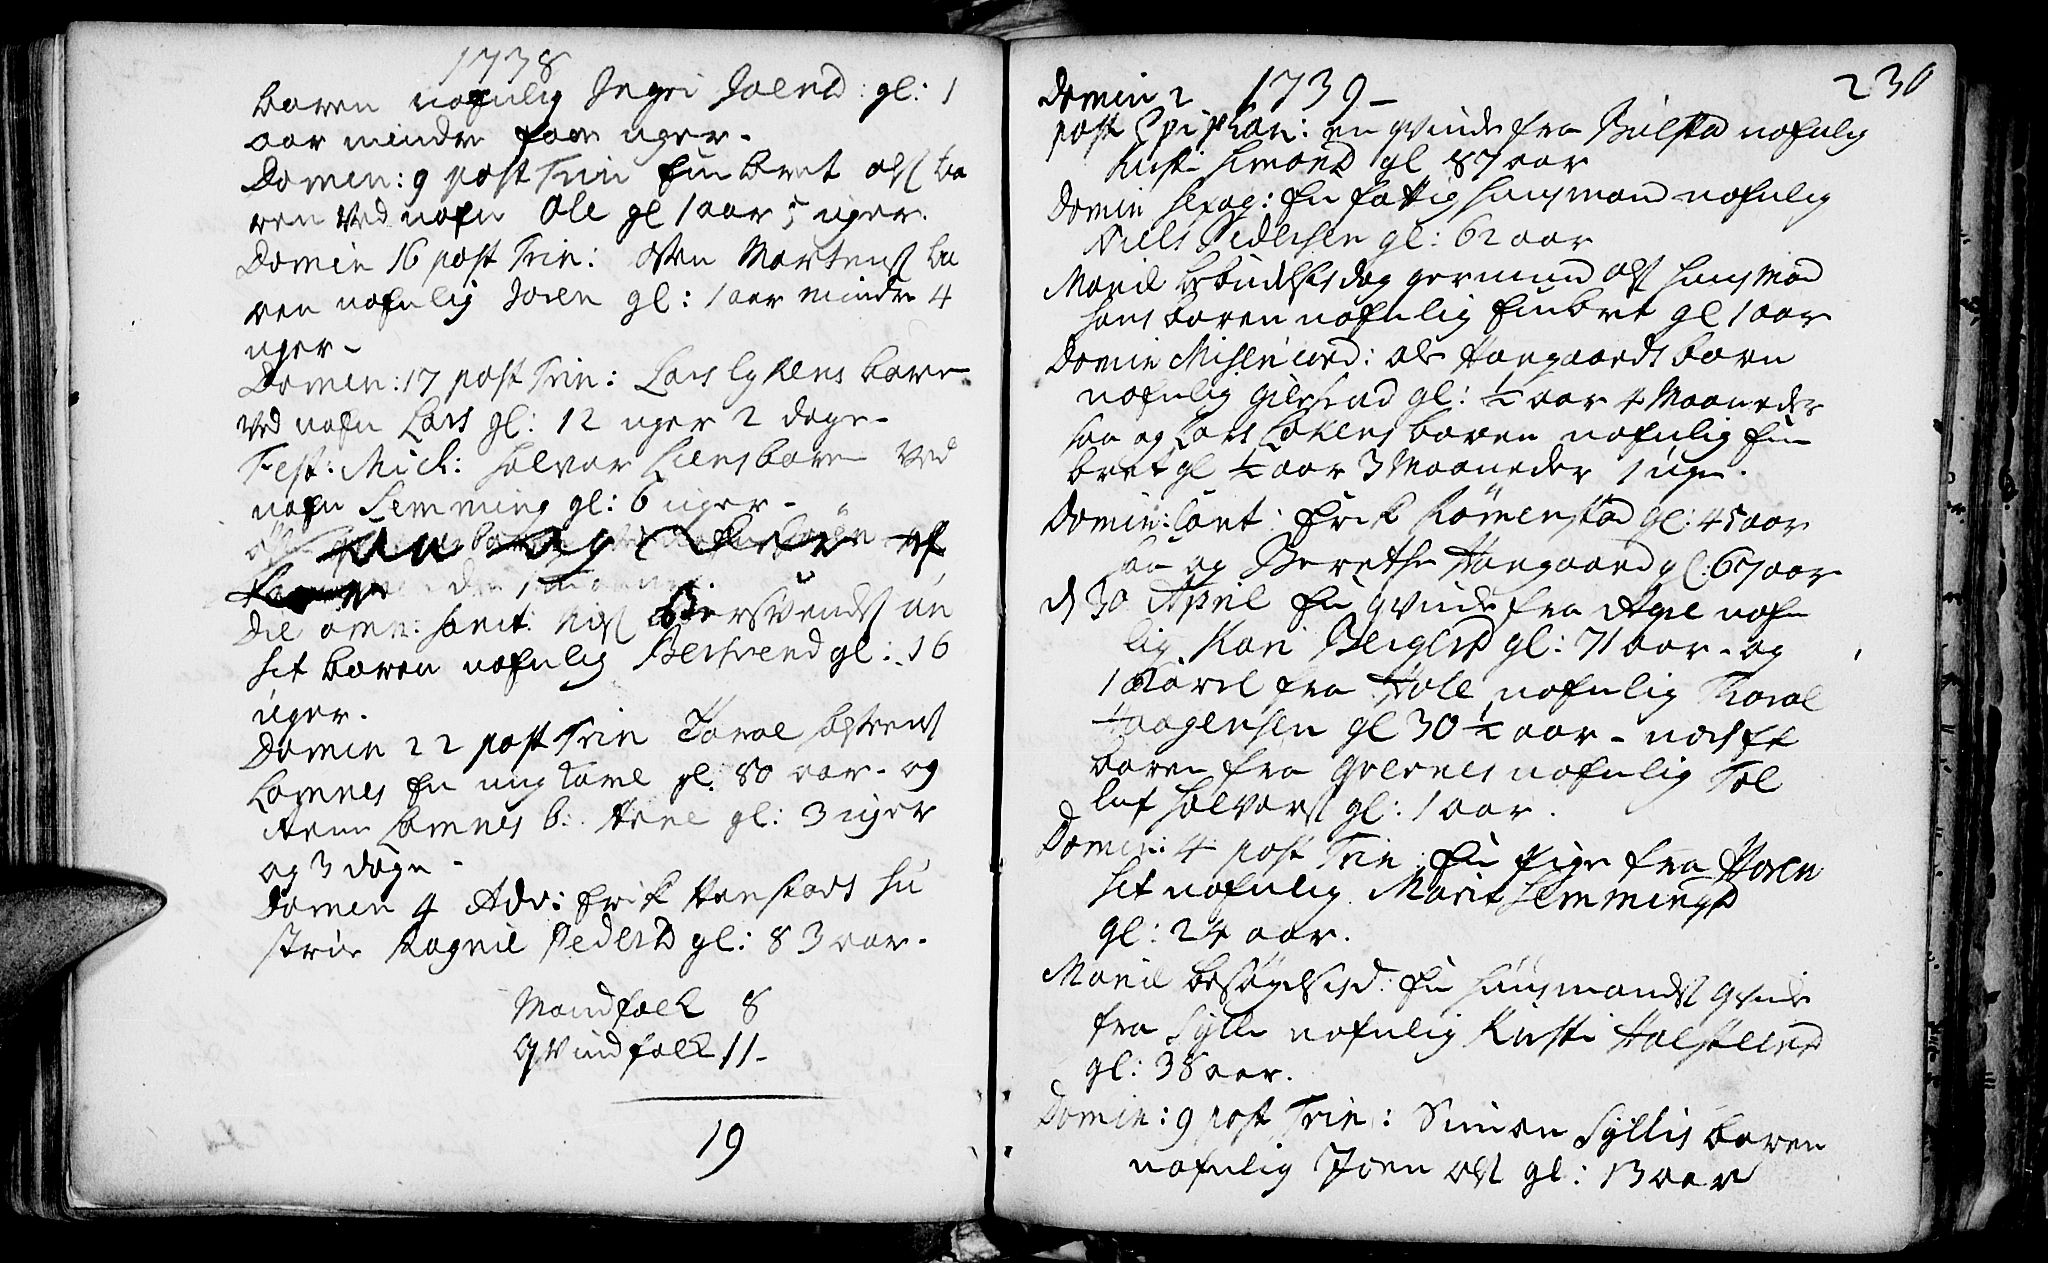 1738
baren nafnlig Ingri Joensd: gl: 1
aar mindre faae uger.
Domin: 9 post Trin Embret Ols: ba
ren ved nafn Ole gl 1 aar 5 uger.
Domin 16 post Trin: Osten Mortens ba
ren nafnlig Joren gl: 1 aar mindre 4
uger-
Domin: 17 post Trin: Lars Lykens baren
ved nafn Lars gl: 12 uger 2 dage-
Fest: Mich: Halvor Liens baren ved
nafn Semming gl: 6 uger-
Die omn: sanct: Nils Bersvends
set baren nafnlig Bersvend gl: 16
uger.
Domin 22 post Trin
Lomnes En ung Karl gl: 80 aar- og
Lomnes b: Arne gl: 3 uger
og 3 dage-
Domin 4 Adv: Erik Hanstads hu
strue Ragnil Pedersd gl: 83 aar-
Mandfolk 8
Qvindfolk 11-
19
230
Domin 2 1739-
post Epiphan: en qvinde fra Bulstad nafnlig
Kirsti Simonsd gl 87 aar
Domin Sexag: En fattig Huusmand nafnlig
Niels Pedersen gl: 62 aar
Mariæ bebudelsis dag Germund Ols: Huusmand
hans baren nafnlig Embret gl 1 aar
Domin Misericord: Ole Haugaards barn
nafnlig gl: ½ aar 4 Maaneder
saa og Lars Løkens baren nafnlig Em
bret gl ½ aar 3 Maaneder 1 uge.
Domin: Cant: Erik Rømenstad gl: 45 aar
saa og Berethe Haugaard gl: 67 aar
d 30 April En qvinde fra nafn
lig Kari gl: 71 aar- og
1 Karl fra Hole nafnlig Thoral
Haagensen gl 30 ½ aar- nock Et
baren fra Qvernes nafnlig Tol
luf Halvors: gl: 1 aar.
Domin: 4 post Trin: En Pige fra Horen
set nafnlig Marit Semmingsd
gl: 24 aar.
Mariæ besøgelsisd: En Huusmands qvinde
fra Sylle nafnlig Kirsti Halsteensd
gl: 38 aar.
Domin: 9 post Trin: Simen Syllis baren
nafnlig Joen Ols: gl: 13 aar